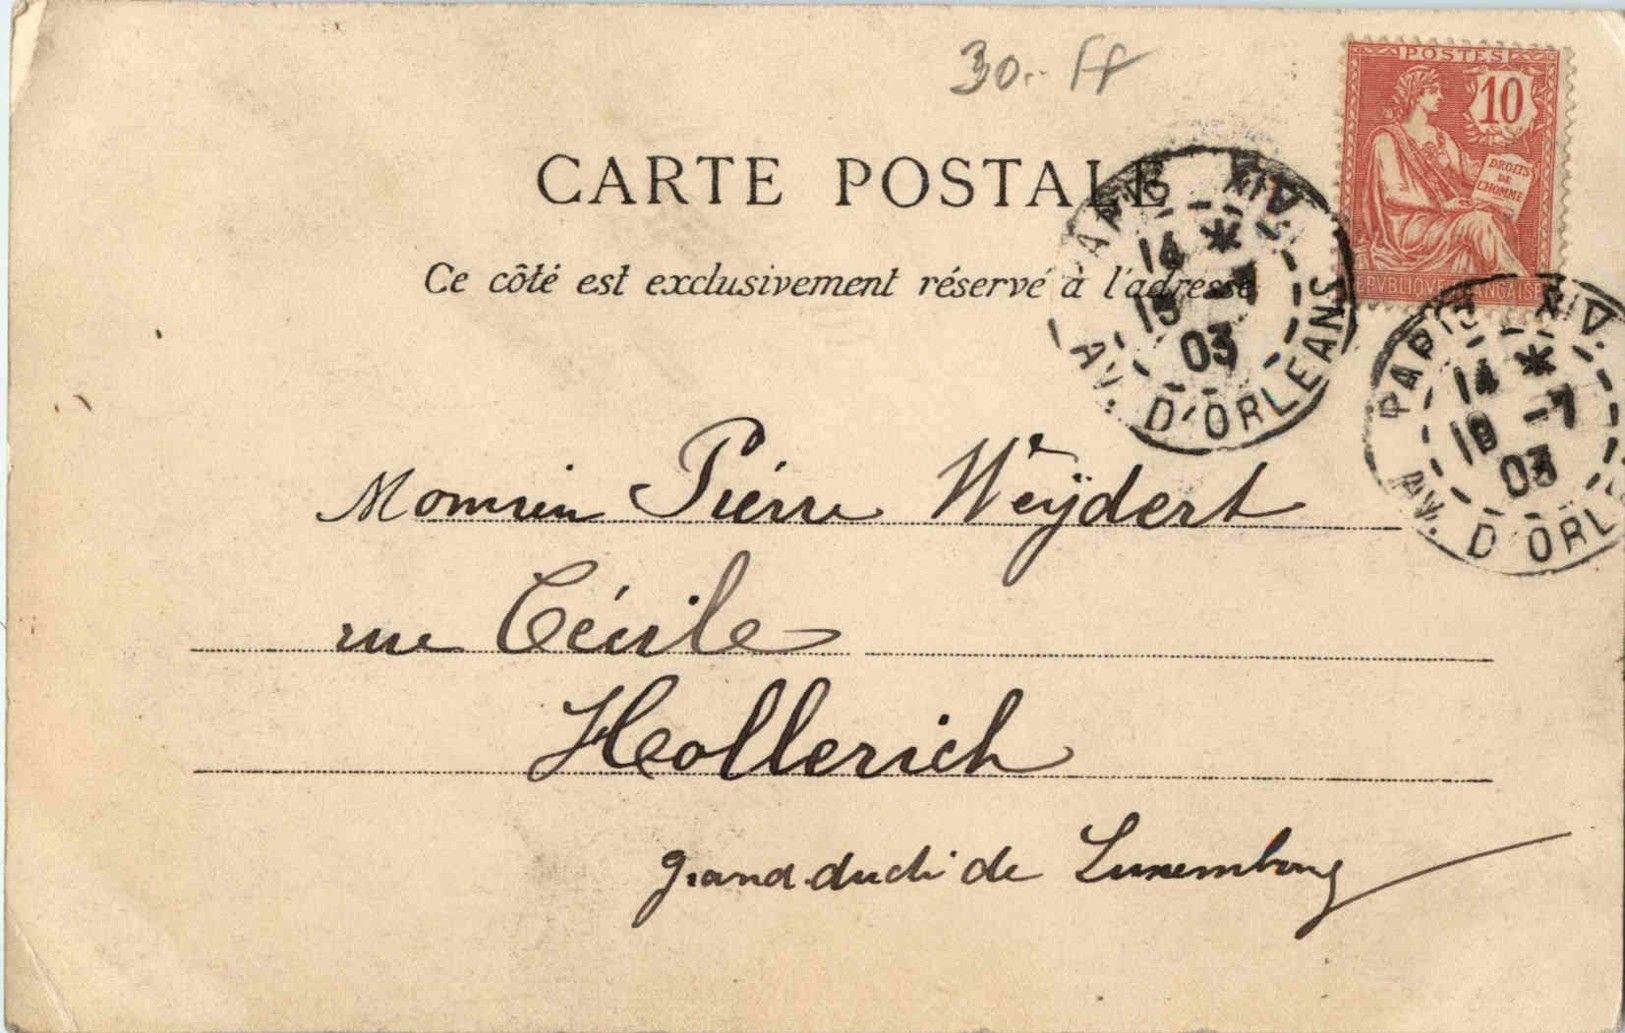 30.- ff
POSTES
10
DROITS
DE
L'HOMME
REPVBLIQVE FRANÇAISE
CARTE POSTALE
Ce côté est exclusivement réservé à l'adresse
PARIS XIV
14 *
03
AV. D'ORLEANS
PARIS XIV
14 *
18 -7
03
AV. D'ORL
Monsieur Piérre Weÿdert
rue Cécile
Hollerich
grand-duché de Luxembourg